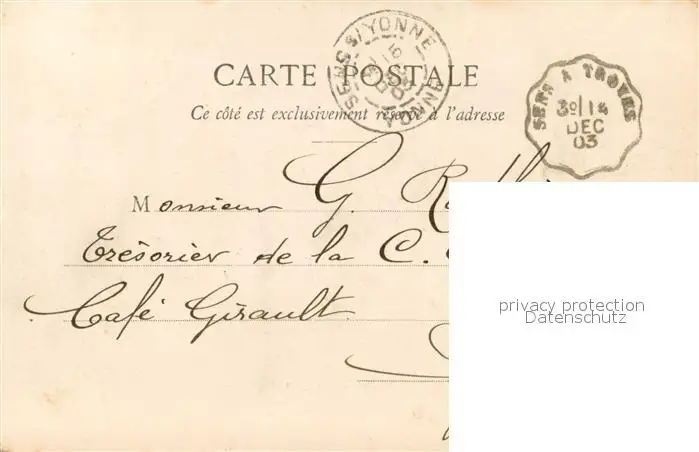 SENS S/YONNE YONNE
CARTE POSTALE
SENS A TROYES
Ce côté est exclusivement réservé à l'adresse
3º 14
DEC
03
Monsieur G.
Trésorier de la C.
Café Girault
privacy protection
Datenschutz